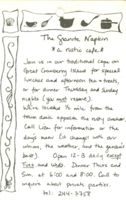 The Granite Napkin
a rustic cafe
Join us in our traditional cape on
Great Cranberry Island for special
lunches and afternoon tea & treats,
or for dinner Thursday and Sunday
nights (you must reserve).
We're located ¼ mile from the
town dock opposite the rocky
Call Lisa for information or the
day's menu (it changes with our
whims, the weather, and the garden's
best). Open 12-3 daily except
Tues and Wed. Dinner Thurs and
Sun. at 6:00 and 8:00. Call to
inquire about private parties.
tel. 244-3758